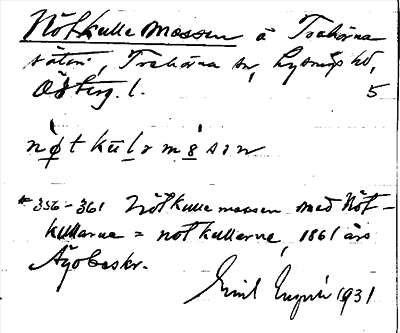 Nötkulle mossen å Trehörna
säteri, Trehörna sn, Lysings hd,
Österg. l. 5
nøt kulɘ mɘsɘn
* 356-361 Nötkulle mossen med Nöt-
kullarne = nötkullarne, 1861 års
Ägobeskr.
Emil 1931